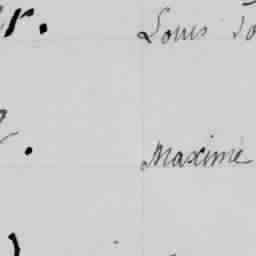 r. Louis
Maxime